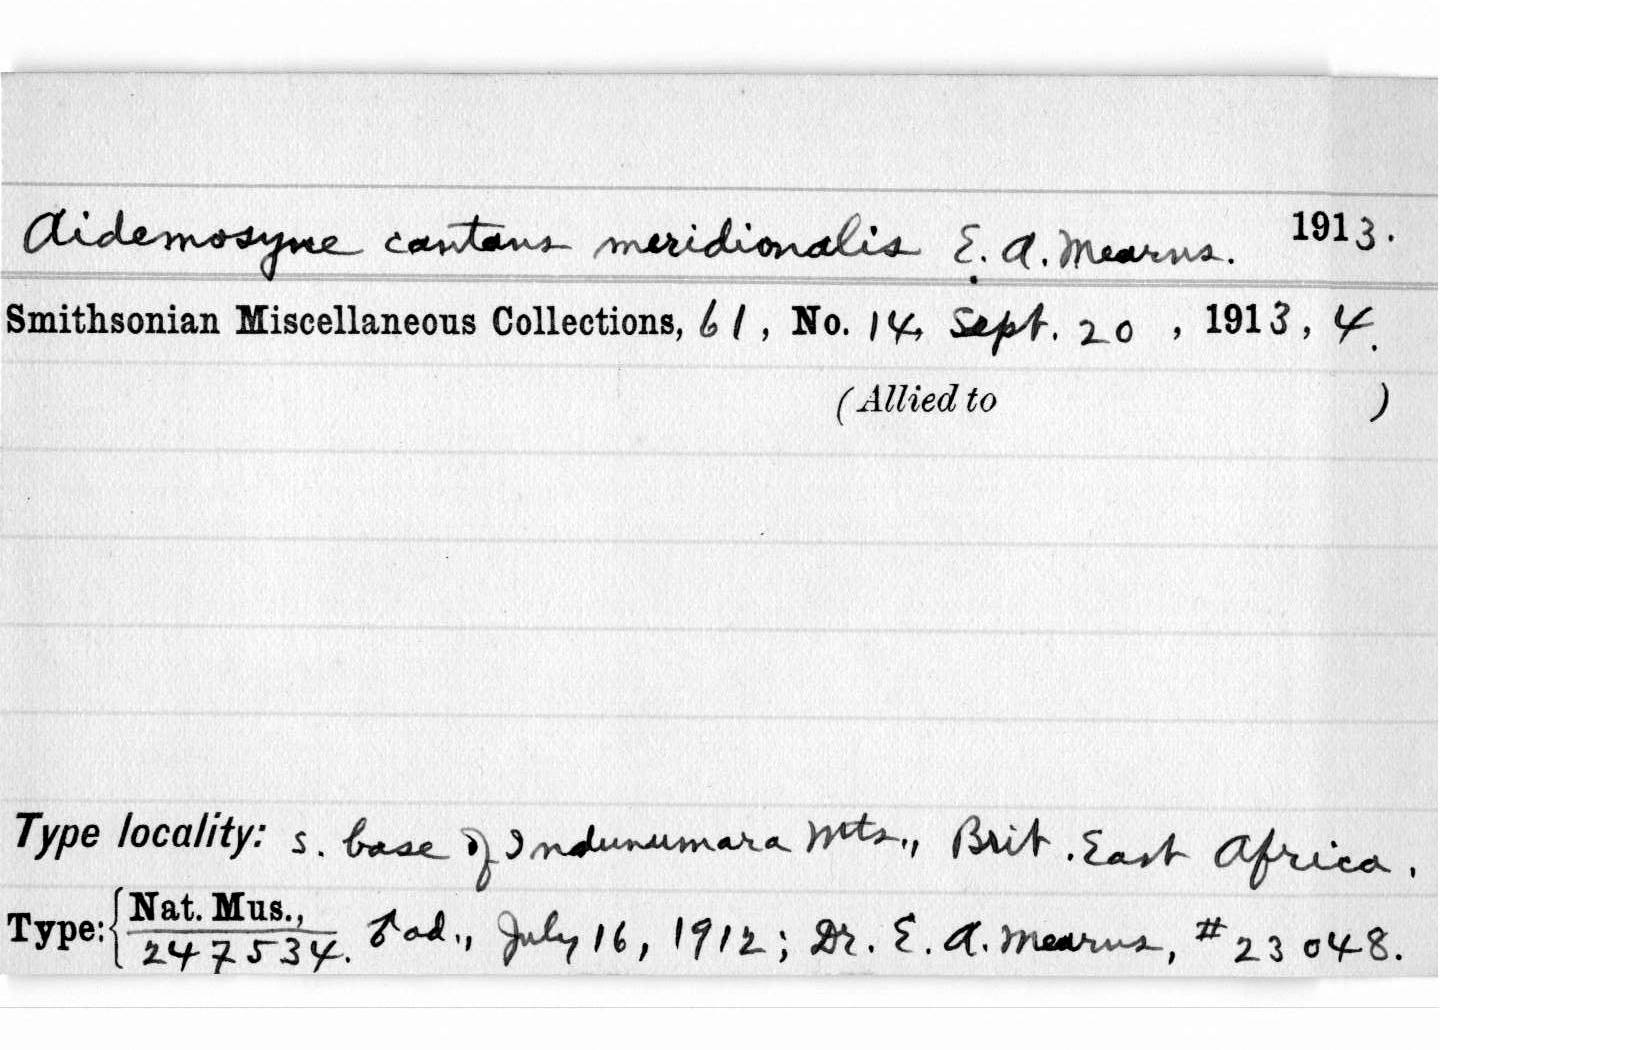 Aidemosyne cantans meridionalis E. A. Mearns. 1913.
Smithsonian Miscellaneous Collections, 61, No. 14, Sept. 20, 1913, 4.
(Allied to )
Type locality: S. base of Indunumara Mts., Brit. East Africa.
Type: { Nat. Mus., ♂ ad., July 16, 1912; Dr. E. A. Mearns, #23048.
247534.